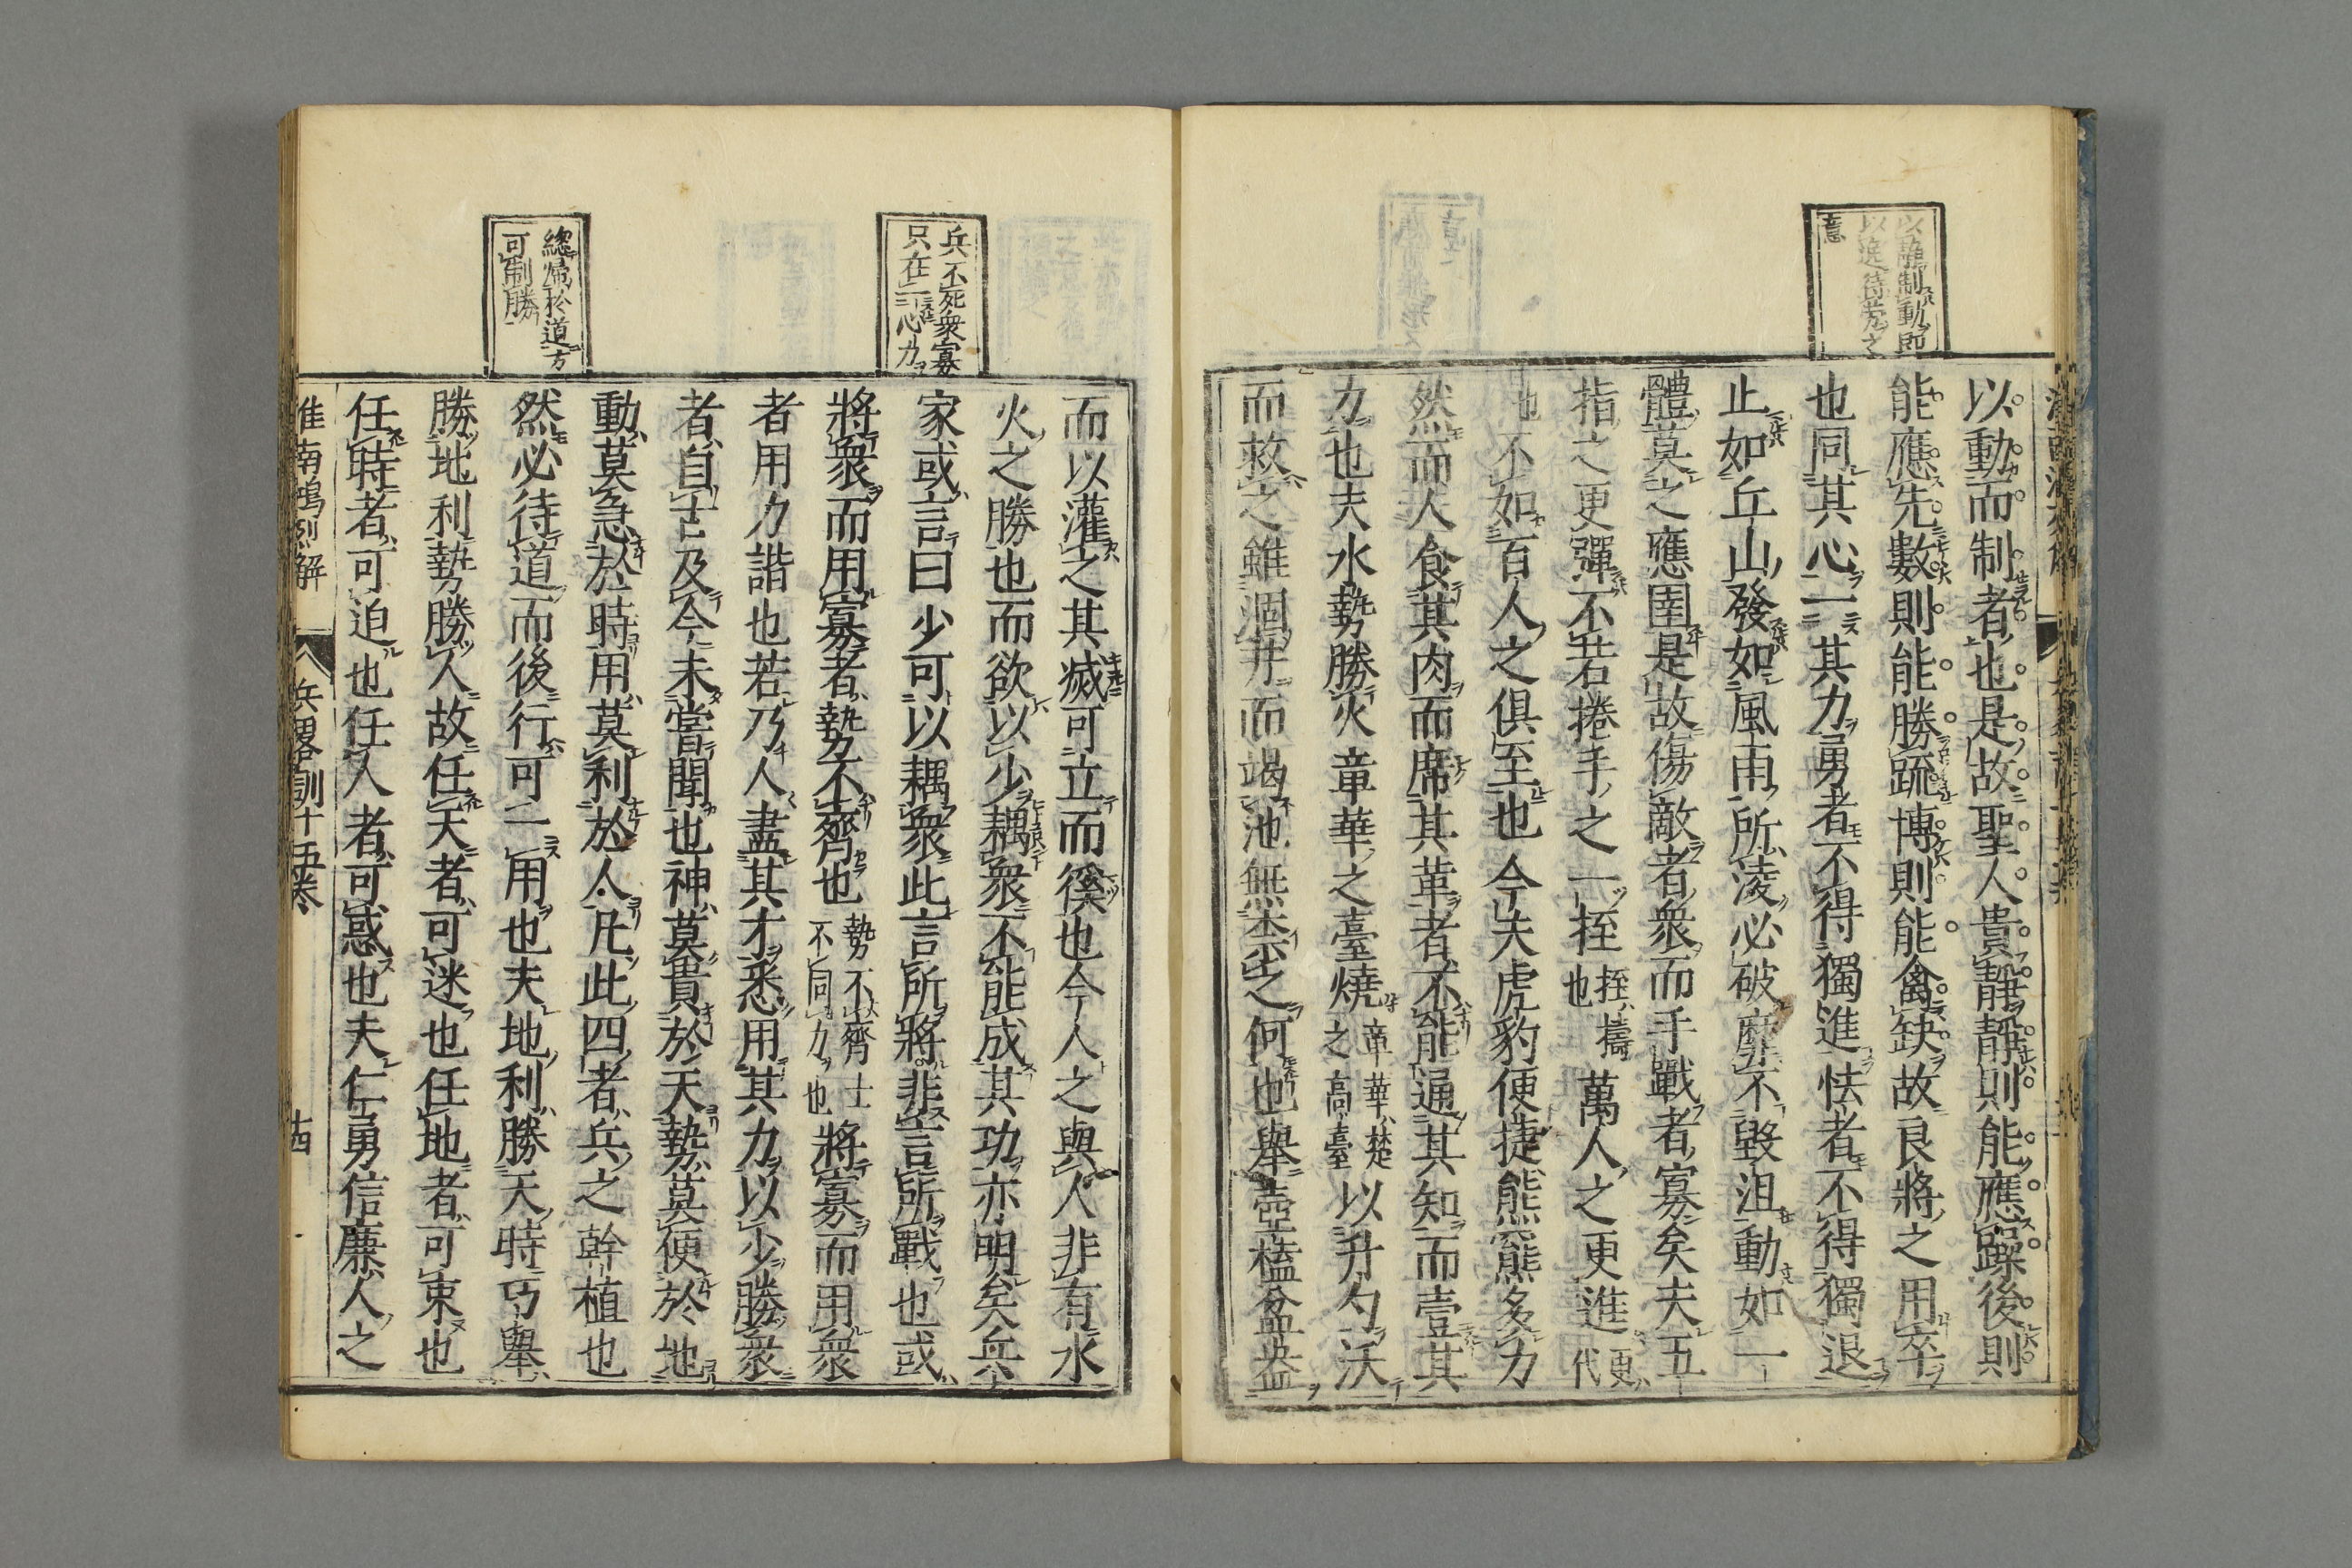 以靜制動即
以逸待勞之
意
以動而制者也是故聖人貴靜靜則能應躁後則
能應先數則能勝疏博則能禽缺故良將之用卒
也同其心一其力勇者不得獨進怯者不得獨退
止如丘山發如風雨所凌必破靡不毀沮動如一
體莫之應圉是故傷敵者衆而手戰者寡矣夫五
指之更彈不若捲手之一挃
挃擣
也
萬人之更進
更
代
也不如百人之俱至也今夫虎豹便捷熊羆多力
然而人食其肉而席其革者不能通其知而壹其
力也夫水勢勝火章華之臺燒
章華楚
之高臺
以升勺沃
而救之雖涸井而竭池無奈之何也舉壺榼盆盎
兵不死衆寡
只在二心力
總歸於道方
可制勝
而以灌之其滅可立而徯也今人之與人非有水
火之勝也而欲以少耦衆不能成其功亦明矣兵
家或言曰少可以耦衆此言所將非言所戰也或
將衆而用寡者勢不齊也
勢不齊士
不同力也
將寡而用衆
者用力諧也若乃人盡其才悉用其力以少勝衆
者自古及今未嘗聞也神莫貴於天勢莫便於地
動莫急於時用莫利於人凡此四者兵之幹植也
然必待道而後行可一用也夫地利勝天時巧舉
勝地利勢勝人故任天者可迷也任地者可束也
任時者可迫也任人者可惑也夫仁勇信廉人之
淮南鴻烈解 兵略訓十五卷 十四